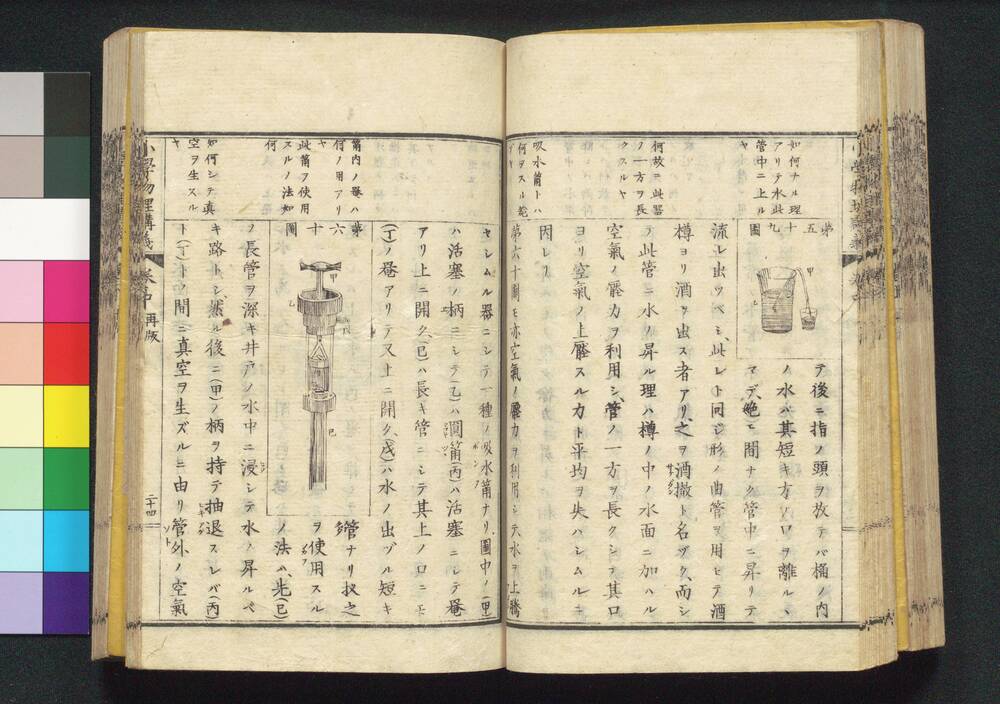 如何ナル理
アリテ水此
管中ニ上ル
ヤ
何故ニ此器
ノ一方ヲ長
クスルヤ
吸水筩トハ
何ヲスル
第五十九圖
甲
乙
テ後ニ指ノ頭ヲ放テバ桶ノ内
ノ水バ其短キ方ノ口ヲ離ルヽ
マデ絶エ間ナク管中ニ昇リテ
流レ出ツベシ此レト同シ形ノ曲管ヲ用ヒテ酒
樽ヨリ酒ヲ出ス者アリ之ヲ酒撤ト名ヅク而シ
テ此管ニ水ノ昇ル理ハ樽ノ中ノ水面ニ加ハル
空氣ノ壓力ヲ利用シ管ノ一方ヲ長クシテ其口
ヨリ空氣ノ上壓スル力ト平均ヲ失ハシムルニ
因レリ
第六十圖モ亦空氣ノ壓力ヲ利用シテ水ヲ上騰
筩内ノ瓣ハ
何ノ用アリ
此筩ヲ使用
スルノ法如
何
如何シテ真
空ヲ生スル
ヤ
セシムル器ニシテ一種ノ吸水筩ナリ圖中ノ(甲)
ハ活塞ノ柄ニシテ(乙)ハ圓筩(丙)ハ活塞ニシテ瓣
アリ上ニ開ク(已)ハ長キ管ニシテ其上ノ口ニモ
(丁)ノ瓣アリテ又上ニ開ク(戊)ハ水ノ出ヅル短キ
第六十圖
甲
乙
已
管ナリ扠之
ヲ使用スル
ノ法ハ先(已)
ノ長管ヲ深キ井戸ノ水中ニ浸シテ水ノ昇ルベ
キ路トシ然ル後ニ(甲)ノ柄ヲ持テ抽退スレバ(丙)
ト(丁)トノ間ニ真空ヲ生ズルニ由リ管外ノ空氣
小學物理講義
巻中
再版
二十四